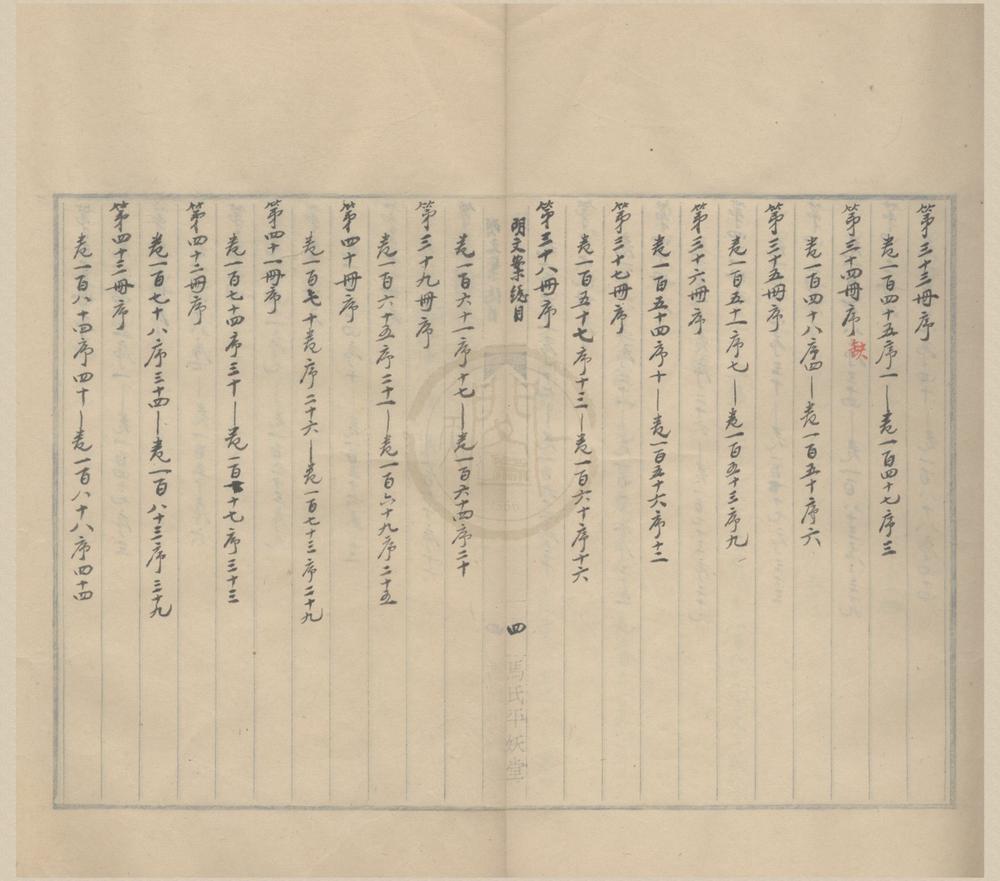 第三十三冊序
卷一百四十五序一—卷一百四十七序三
第三十四冊序 缺
卷一百四十八序四—卷一百五十序六
第三十五冊序
卷一百五十一序七—卷一百五十三序九
第三十六冊序
卷一百五十四序十—卷一百五十六序十二
第三十七冊序
卷一百五十七序十三—卷一百六十序十六
第三十八冊序
明文案總目
四
馬氏平妖堂
卷一百六十一序十七—卷一百六十四序二十
第三十九冊序
卷一百六十五序二十一—卷一百六十九序二十五
第四十冊序
卷一百七十卷序二十六—卷一百七十三序二十九
第四十一冊序
卷一百七十四序三十—卷一百七十七序三十三
第四十二冊序
卷一百七十八序三十四—卷一百八十三序三十九
第四十三冊序
卷一百八十四序四十—卷一百八十八序四十四